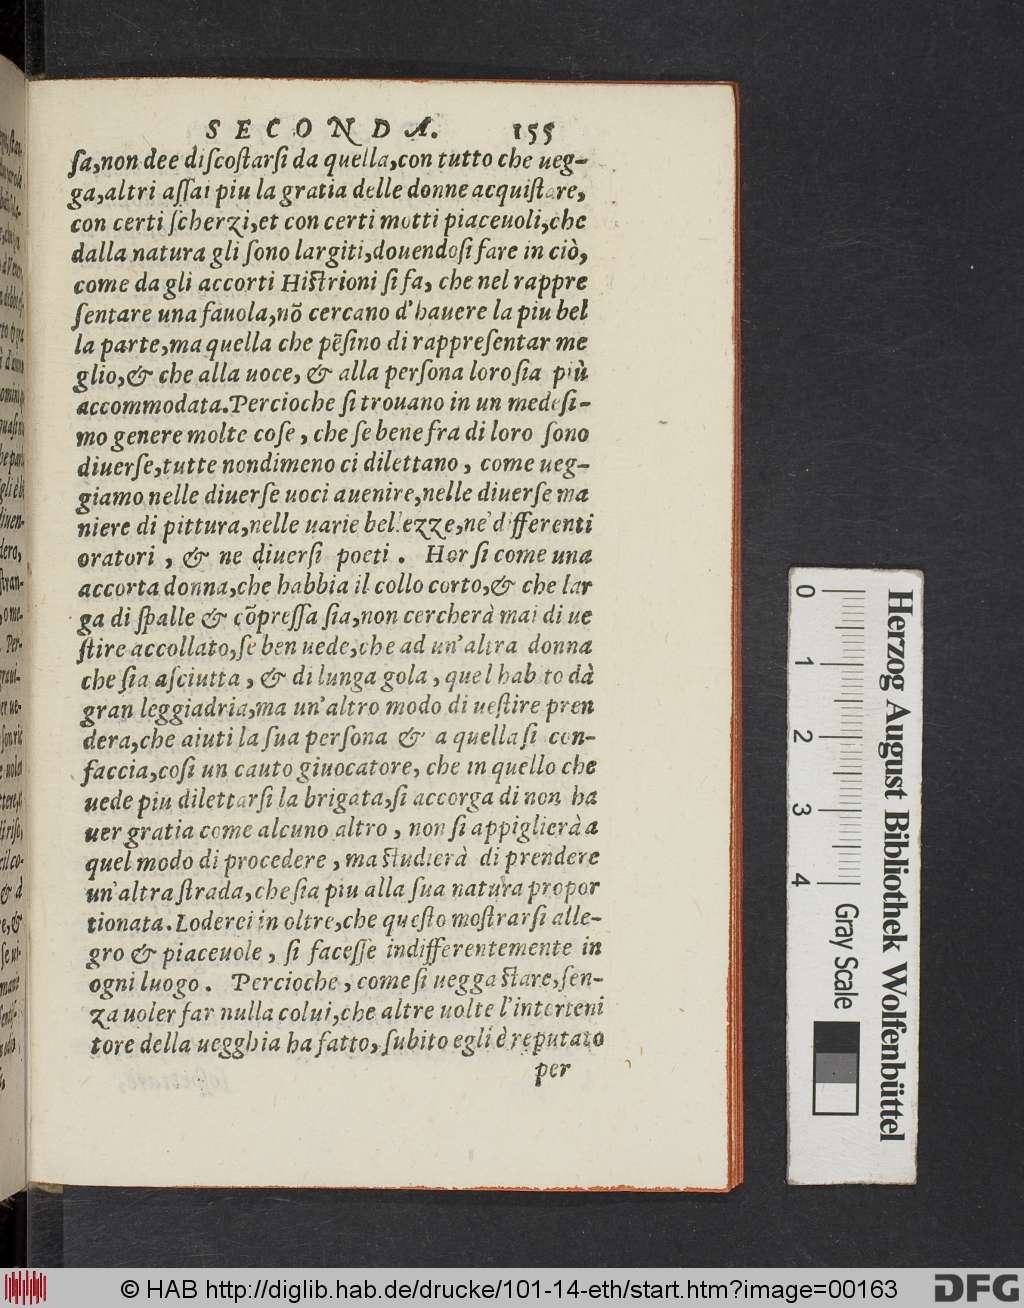 SECONDA. 155
ſa,non dee diſcoſtarſi da quella,con tutto che ueg-
ga,altri aſſai piu la gratia delle donne acquiſtare,
con certi ſcherzi,et con certi motti piaceuoli,che
dalla natura gli ſono largiti,douendoſi fare in ciò,
come da gli accorti Hiſtrioni ſi fa, che nel rappre
ſentare una fauola,nõ cercano d'hauere la piu bel
la parte,ma quella che pẽſino di rappreſentar me
glio,& che alla uoce, & alla perſona loro ſia più
accommodata.Percioche ſi trouano in un medeſi-
mo genere molte coſe, che ſe bene fra di loro ſono
diuerſe,tutte nondimeno ci dilettano, come ueg-
giamo nelle diuerſe uoci auenire,nelle diuerſe ma
niere di pittura,nelle uarie bellezze,ne' differenti
oratori, & ne diuerſi poeti. Hor ſi come una
accorta donna,che habbia il collo corto,& che lar
ga di ſpalle & cõpreſſa ſia,non cercherà mai di ue
ſtire accollato,ſe ben uede,che ad un'altra donna
che ſia aſciutta, & di lunga gola, quel habito dà
gran leggiadria,ma un'altro modo di ueſtire pren
dera,che aiuti la ſua perſona & a quella ſi con-
faccia,coſi un cauto giuocatore, che in quello che
uede piu dilettarſi la brigata,ſi accorga di non ha
uer gratia come alcuno altro, non ſi appiglierà a
quel modo di procedere, ma ſtudierà di prendere
un'altra ſtrada,che ſia piu alla ſua natura propor
tionata.Loderei in oltre,che queſto moſtrarſi alle-
gro & piaceuole, ſi faceſſe indifferentemente in
ogni luogo. Percioche, come ſi uegga ſtare,ſen-
za uoler far nulla colui,che altre uolte l'interteni
tore della uegghia ha fatto, ſubito egli è reputato
per
0 1 2 3 4
Gray Scale
Herzog August Bibliothek Wolfenbüttel
© HAB http://diglib.hab.de/drucke/101-14-eth/start.htm?image=00163
DFG